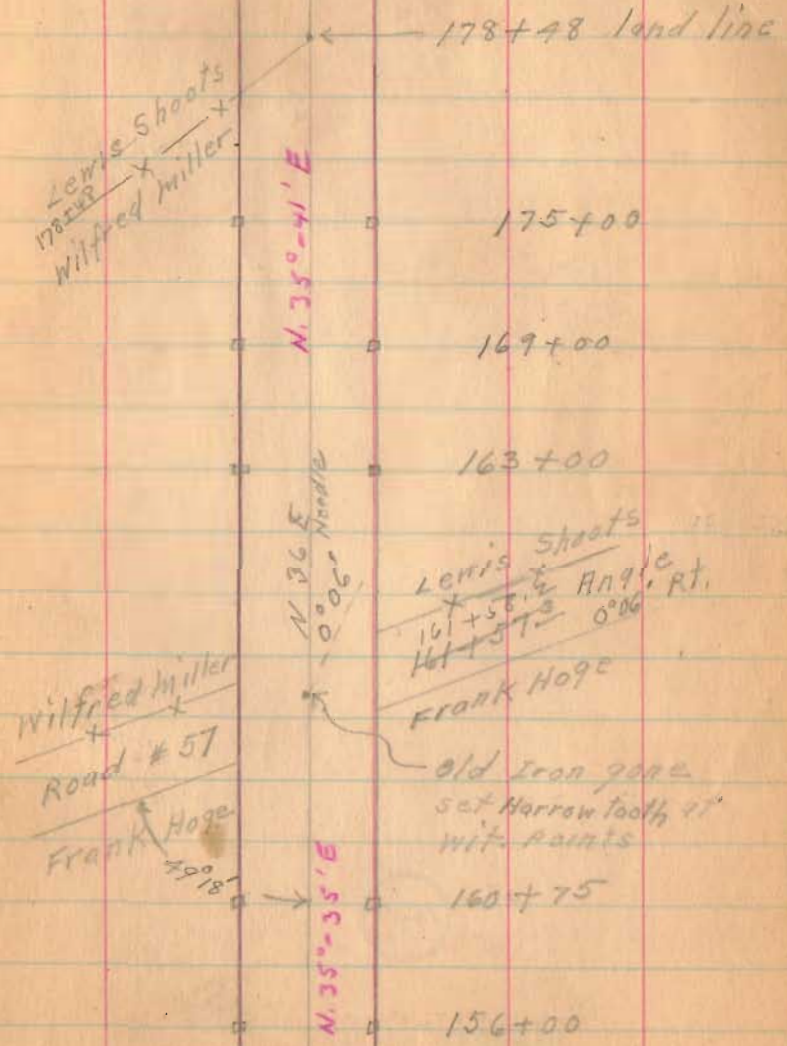 178+48 land line
Lewis Shoots
178+48
Wilfred Miller
N. 35°-41' E
175+00
169+00
163+00
N 36 E
0°06' Needle
Lewis Shoots
161+58.2
161+57.3
Angle Rt.
0°06'
Frank Hoge
Wilfred Miller
Road #57
Frank Hoge
79°18'
Old Iron gone
set Harrow tooth at
wit. Points
160+75
N. 35°-35' E
156+00